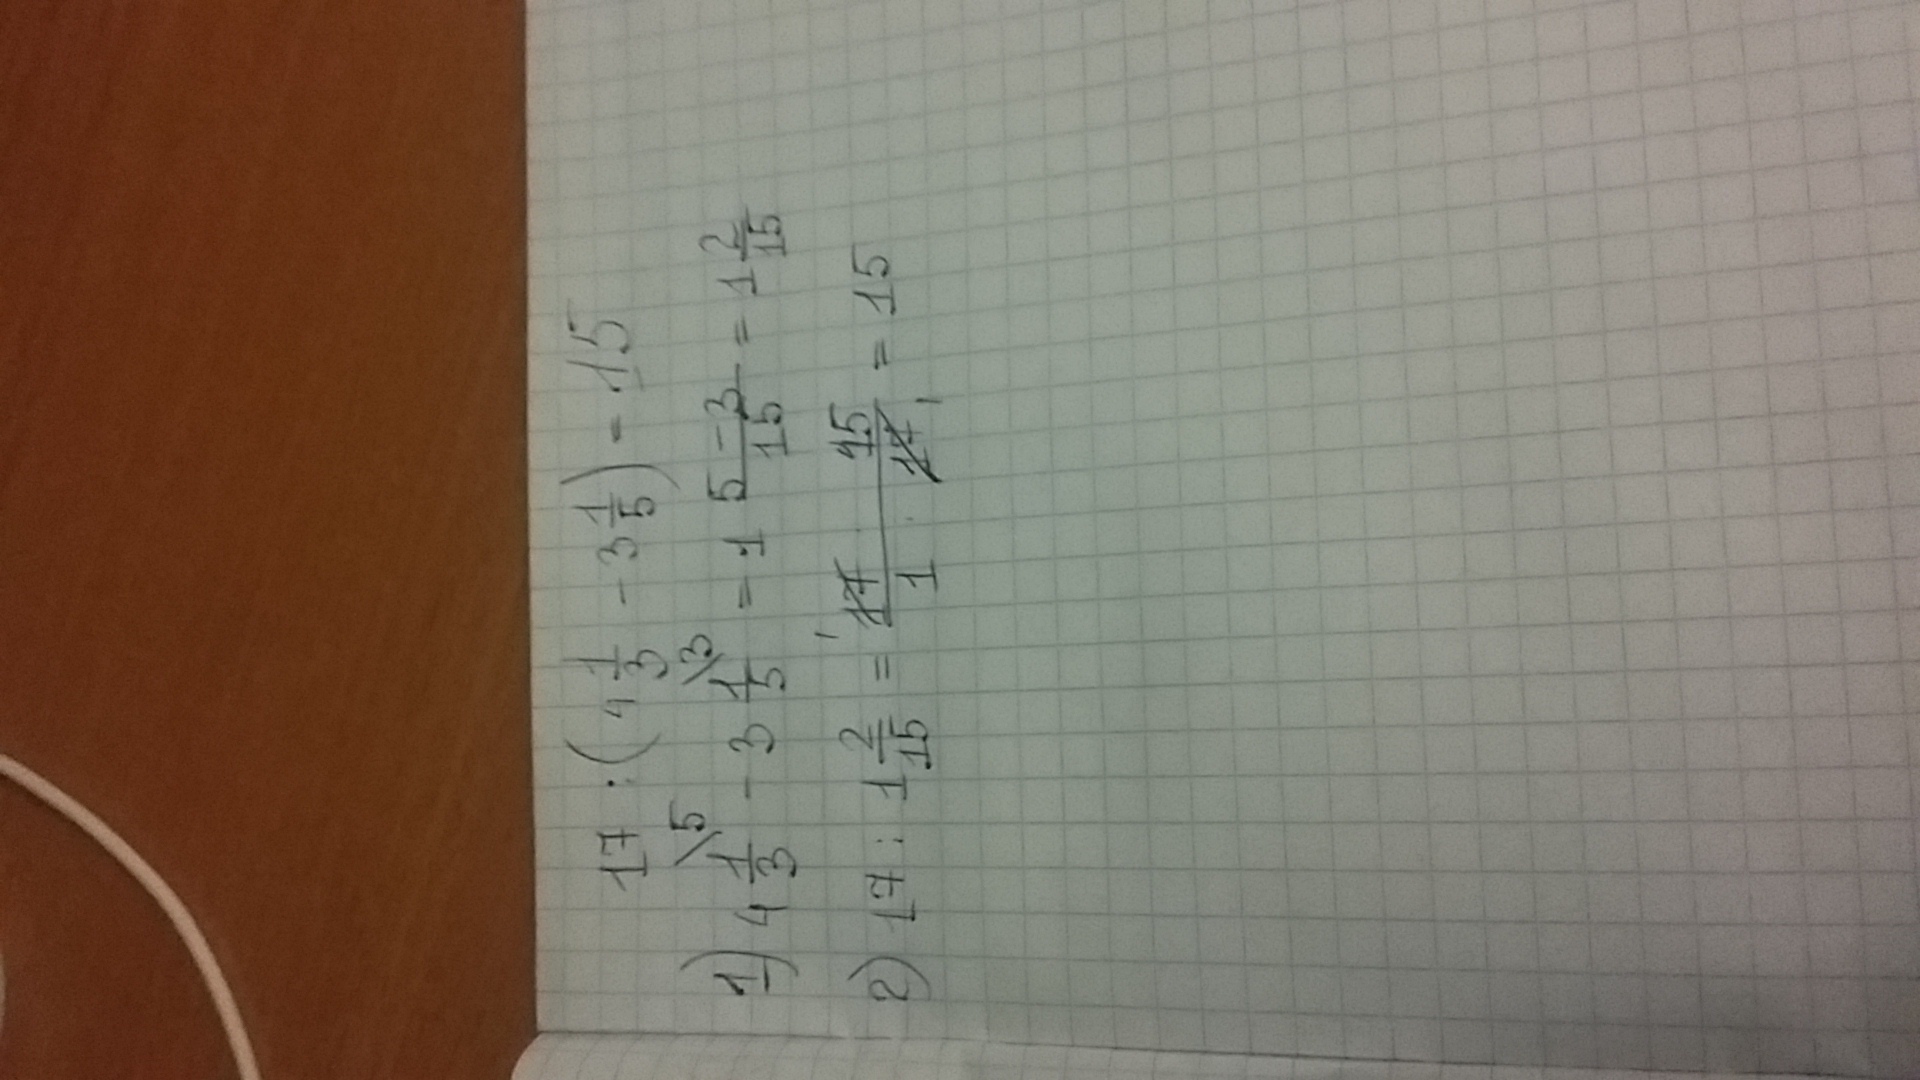 17 : (4 1/3 - 3 1/5) = 15
1) 4 1/3 \5 - 3 1/5 \3 = 1 5-3/15 = 1 2/15
2) 17 : 1 2/15 = 17 · 15 / 1 · 17 = 15